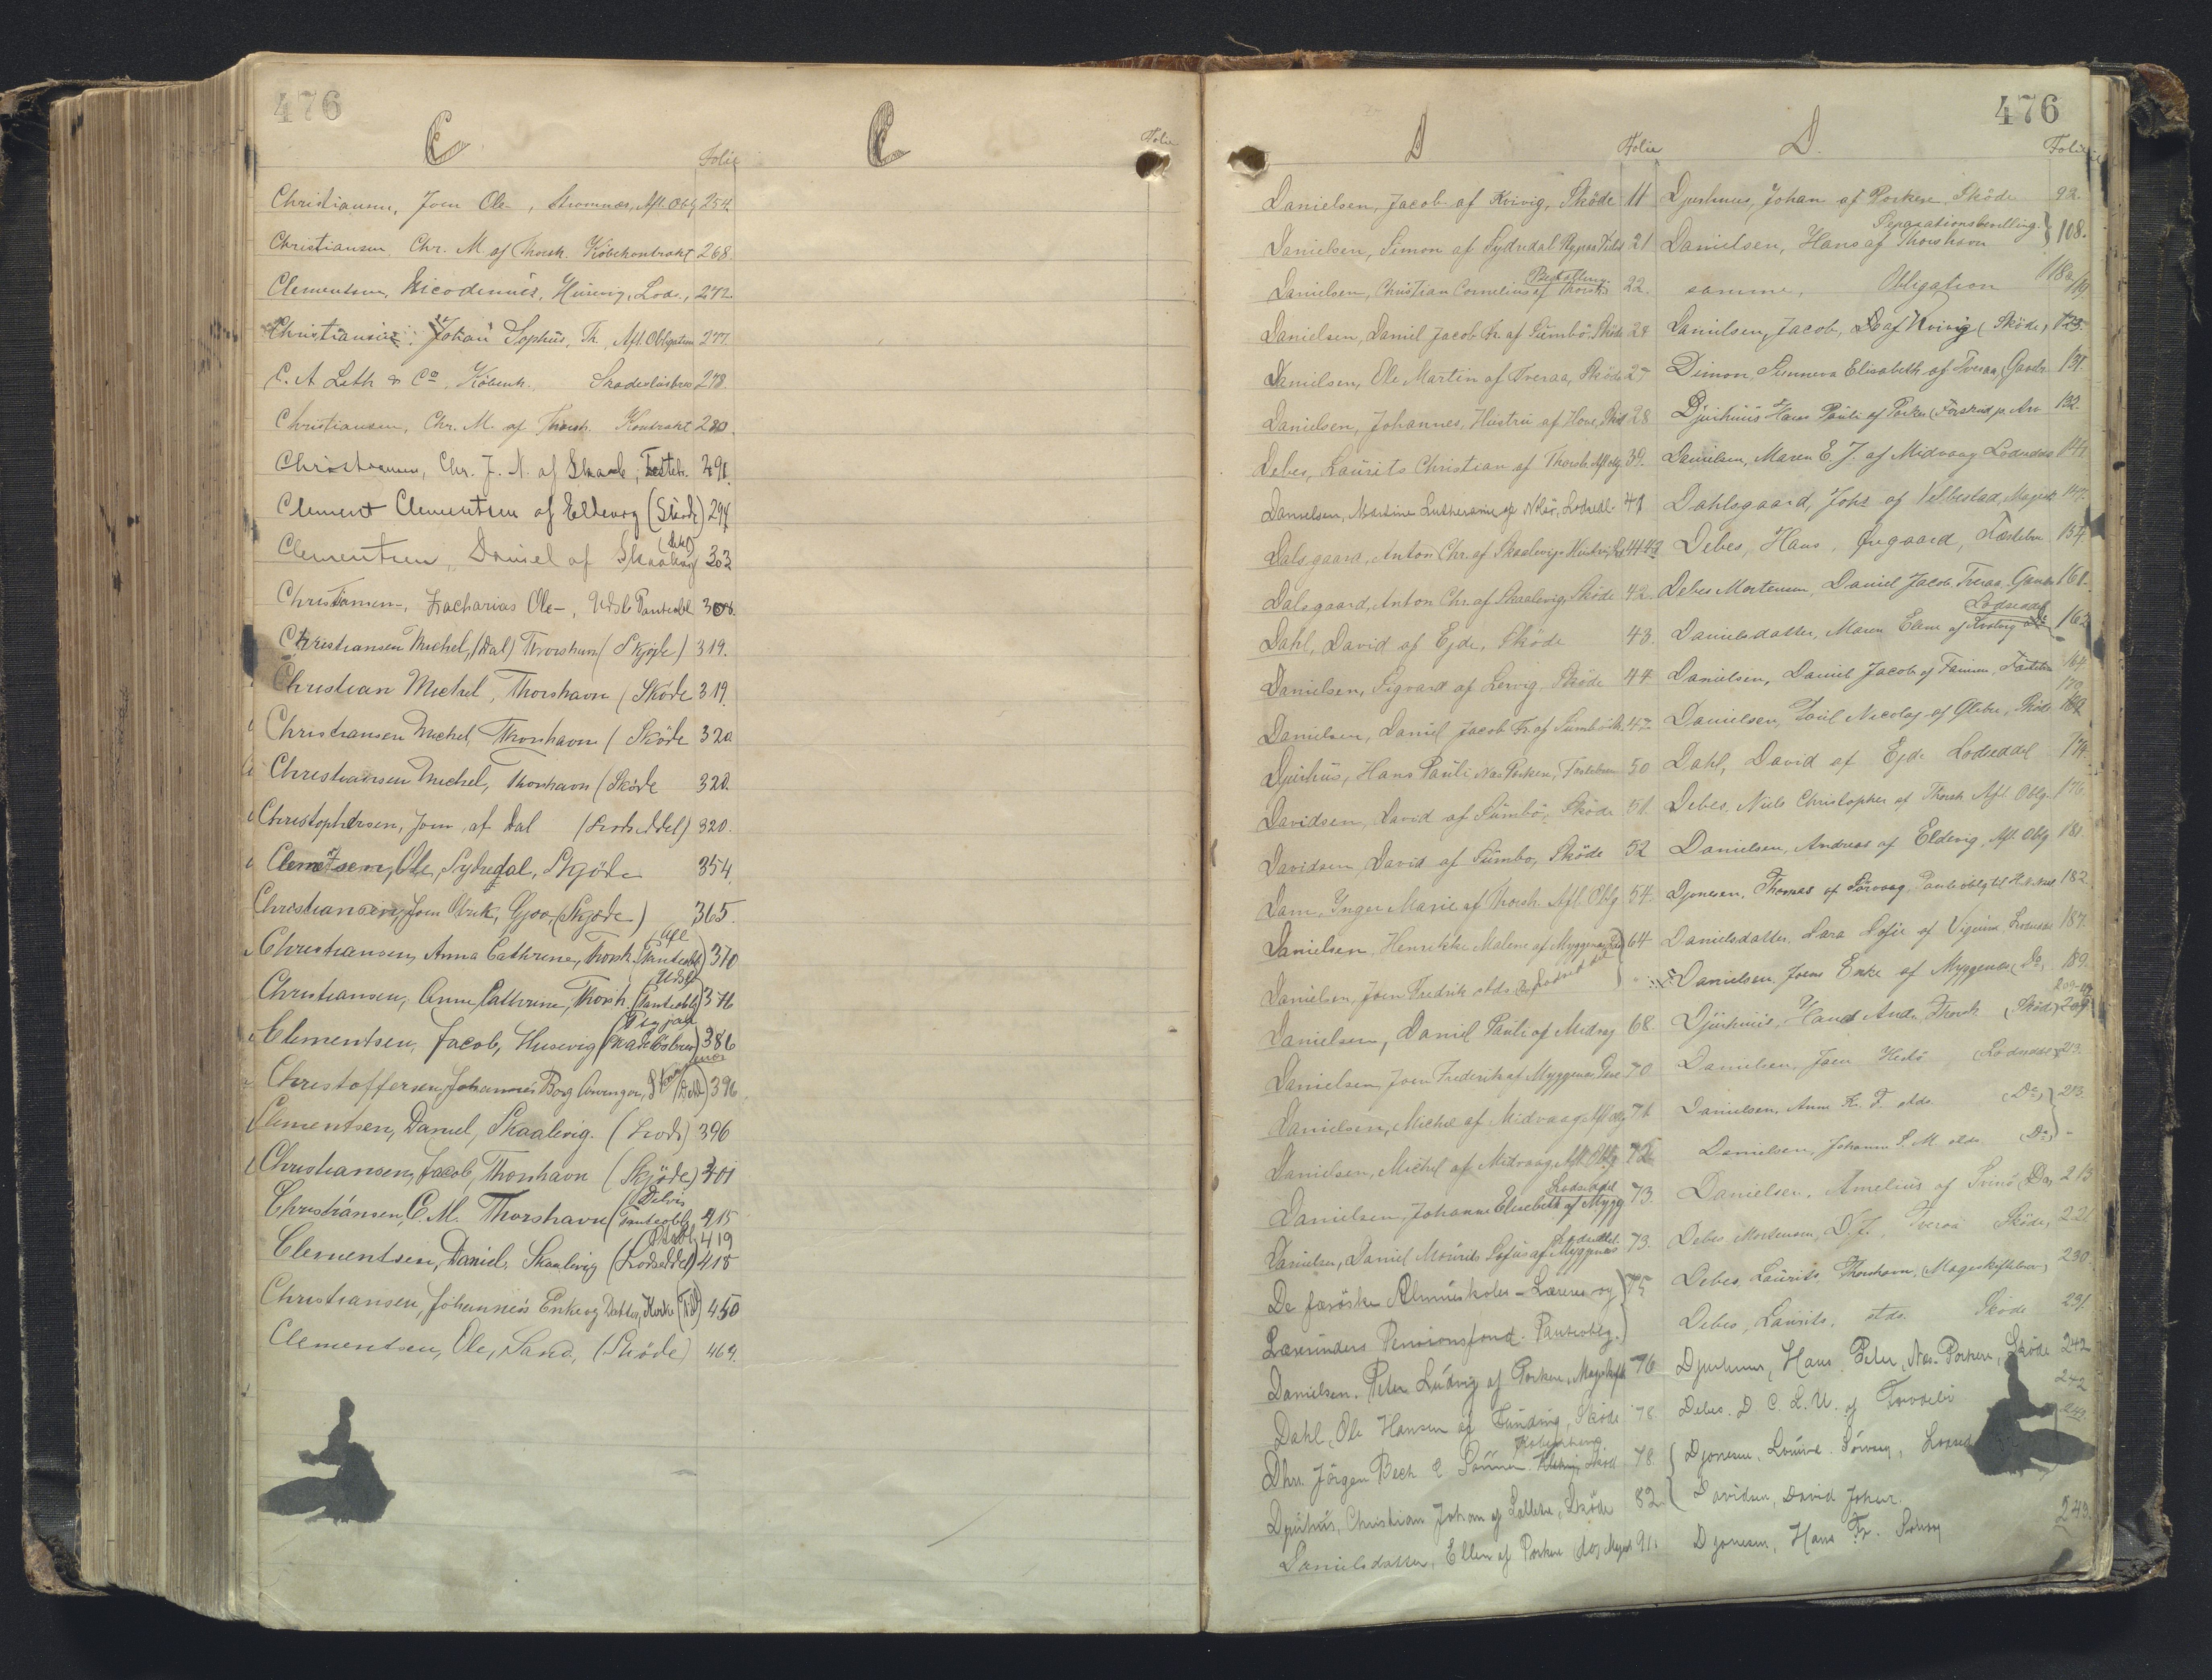 476
C
Folie
Christiansen, Joen Ole-, Strømnæs, Afl. Obl. 254.
Christiansen, Chr. M. af Thorsh. Köbekontrakt 268
Clementsen, Nicodemus, Husevig, Lods., 272.
Christiansen, Johan Sophus, Th., Afl. Obligation 277.
C. A. Leth & Co. Köbenh. Skadeslösbrev 278.
Christiansen, Chr. M. af Thorsh. Kontrakt 280.
Christiansen, Chr. J. N. af Skaale, Festebr. 291.
Clement Clementsen af Eldevig (Sköde) 294
Clementsen, Daniel af Skaalevig 303
Christiansen, Zacharias Ole-, Udsl. Panteobl 308.
Christiansen Michel, (Dal) Thorshavn (Skjöde) 319.
Christian Michel, Thorshavn (Sköde 319.
Christiansen Michel, Thorshavn (Sköde 320
Christiansen Michel, Thorshavn (Sköde 320.
Christophersen, Joen, af Dal (Lodseddel) 320.
Clementsen, Ole, Sydredal, Skjöde 354.
Christiansen, Joen Ulrik, Gjov, (Skjøde) 365.
Christiansen, Anna Cathrine, Thorsh. (Afl Panteobl) 370
Christiansen, Anne Cathrine, Thorsh. (Udsl Panteobl) 376
Clementsen, Jacob, Husevig (Skadeslösbrev) 386
Christoffersen, Johannes Borg Arvinger, 396
Clementsen, Daniel, Skaalevig. (Lods) 396
Christiansen, Jacob, Thorshavn (Skjöde) 401
Christiansen, C. M. Thorshavn (Delvis Panteobl. 415
419
Clementsen, Daniel, Skaalevig (Lodseddel) 418
Christiansen, Johannes Enke og Datter, 450
Clementsen, Ole, Sand, (Sköde) 469.
C
Folie
476
D
Folie
Danielsen, Jacob af Kvivig, Sköde 11
Danielsen, Simon af Sydredal 21
Danielsen, Christian Cornelius af Thorsh. Bestalling 22.
Danielsen, Daniel Jacob Fr. af Sumbö, Sköde 24
Danielsen, Ole Martin af Tveraa, Sköde 27
Danielsen, Johannes, Hustru af Hove, Sköd 28
Debes, Laurits Christian af Thorsh. Afl. Obl. 39.
Danielsen, Martine Lutherine af Nolsö, Lodsedl. 41
Dalsgaard, Anton Chr. af Skaalevig
Dalsgaard, Anton Chr. af Skaalevig, Sköde 42
Dahl, David af Ejde, Sköde 43.
Danielsen, Sigvard af Lervig, Sköde 44
Danielsen, Daniel Jacob Fr. af Sumbö 47
Djurhuus, Hans Pauli Næs Porkere, Festebrev 50
Davidsen, David af Sumbö, Sköde 51.
Davidsen, David af Sumbo, Sköde 52
Dam, Inger Marie af Thorsh. Afl. Oblg. 54.
Danielsen, Henrikke Malene af Myggenæs } 64
Danielsen, Joen Fredrik stds. Lodseddel
Danielsen, Daniel Pauli af Midvaag 68.
Danielsen, Joen Frederik af Myggenæs 70
Danielsen, Michel af Midvaag Afl. obl. 71
Danielsen, Michel af Midvaag Afl. Obl. 72
Danielsen, Johanne Elisebeth af Mygg Lodseddel 73.
Danielsen, Daniel Mourits Sofus af Myggenæs Lodseddel 73.
De færöske Almueskoles-Lærere og } 75
Lærerinders Pensionsfond. Panteoblg. }
Danielsen, Peter Ludvig af Porkere, Mageskift 76
Dahl, Ole Hansen af Funding, Sköde 78
Dhrr. Jörgen Bech & Sönner Köbenhavn 78.
Djurhuus, Christian Johan af Sælletræ, Sköde 82.
Danielsdatter, Ellen af Porkere 91.
D.
Folie
Djurhuus, Johan af Porkere, Sköde 92.
Danielsen, Hans af Thorshavn Separationsbevilling. } 108.
samme, Obligation 118a/119
Danielsen, Jacob, af Kvivig (Sköde), 125.
Dimon, Sunneva Elisabeth af Tveraa, 131.
Djurhuus Hans Pauli af Porkere (Forskud p. Arv 132.
Danielsen, Maren E. J. af Midvaag Lodseddel 142
Dahlsgaard, Johs. af Velbestad, Magesk. 147.
Debes, Hans, Gvegaard, Fæstebr. 154.
Debes Mortensen, Daniel Jacob, Tveraa, 161.
Danielsdatter, Maren Elene af Lodseddel 162
Danielsen, Daniel Jacob af Famien, Fæstebr. 164.
Danielsen, Poul Nicolaj af Glibre, Sköde
Dahl, David af Ejde Lodseddel 174.
Debes, Niels Christopher af Thorsh. Afl. Oblg. 176.
Danielsen, Andreas af Eldevig, Afl. Oblg 181.
Djonesen, Thomas af Sörvaag, 182.
Danielsdatter, Sara Sofie af Viderø, Lodseddel 187.
Danielsen, Joens Enke af Myggenæs (Do, 189.
Djurhuus, Hans Andr. Thorsh. (Sköde) 209
Danielsen, Joen Hestö (Lodseddel) 213.
Danielsen, Anne K. F. stds. (Do) } 213.
Danielsen, Johanne S. M. stds. (Do) -
Danielsen, Amelius af Svinö (Do) 215
Debes Mortensen, D. J., Tveraa Sköde, 221
Debes, Laurits, Thorshavn, (Mageskiftebrev) 230.
Debes, Laurits, stds. Sköde 231.
Djurhuus, Hans Peter, Næs Porkere, Sköde 242
Debes. D. C. L. U. af Trodebö 242
Djonesen, Louise. Sörvaag, Lodsed
Davidsen, David Johan.
Djonesen, Hans Fr. Sörvaag 243.